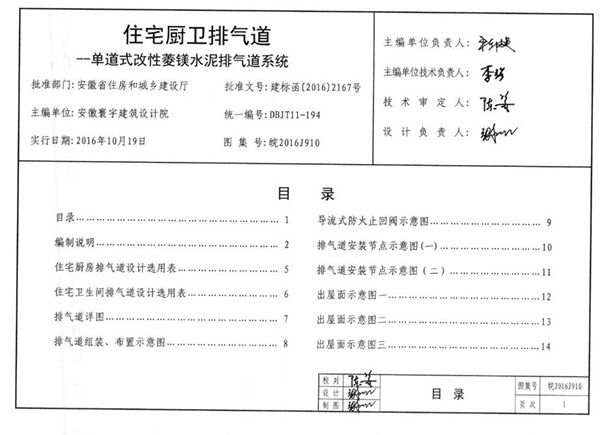 住宅厨卫排气道
--单道式改性菱镁水泥排气道系统
批准部门：安徽省住房和城乡建设厅 批准文号：建标函[2016]2167号
主编单位：安徽寰宇建筑设计院 统一编号：DBJT11-194
实行日期：2016年10月19日 图 集 号：皖2016J910
主编单位负责人：
主编单位技术负责人：
技 术 审 定 人：
设 计 负 责 人：
目 录
目录 1
编制说明 2
住宅厨房排气道设计选用表 5
住宅卫生间排气道设计选用表 6
排气道详图 7
排气道组装、布置示意图 8
导流式防火止回阀示意图 9
排气道安装节点示意图(一) 10
排气道安装节点示意图（二） 11
出屋面示意图一 12
出屋面示意图二 13
出屋面示意图三 14
校 对
设 计
制 图
目 录
图集号 皖2016J910
页 次 1